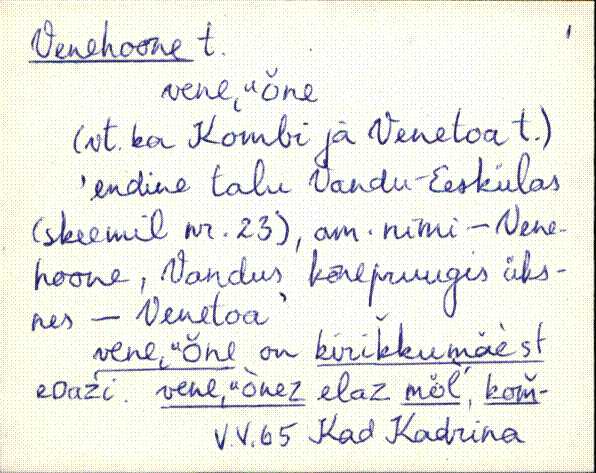 Venehoone t.
vene˛ᵘŏne
(vt. ka Kombi ja Venetoa t.)
'endine talu Vandu-Eeskülas
(skeemil nr. 23), am. nimi – Vene-
hoone, Vandus kõnepruugis üks-
nes – Venetoa'
vene˛ᵘŏne on kirikkumäèst
eDaži. vene˛ᵘònez elaz mŏl', kom̆-
V.V.65 Kad Kadrina